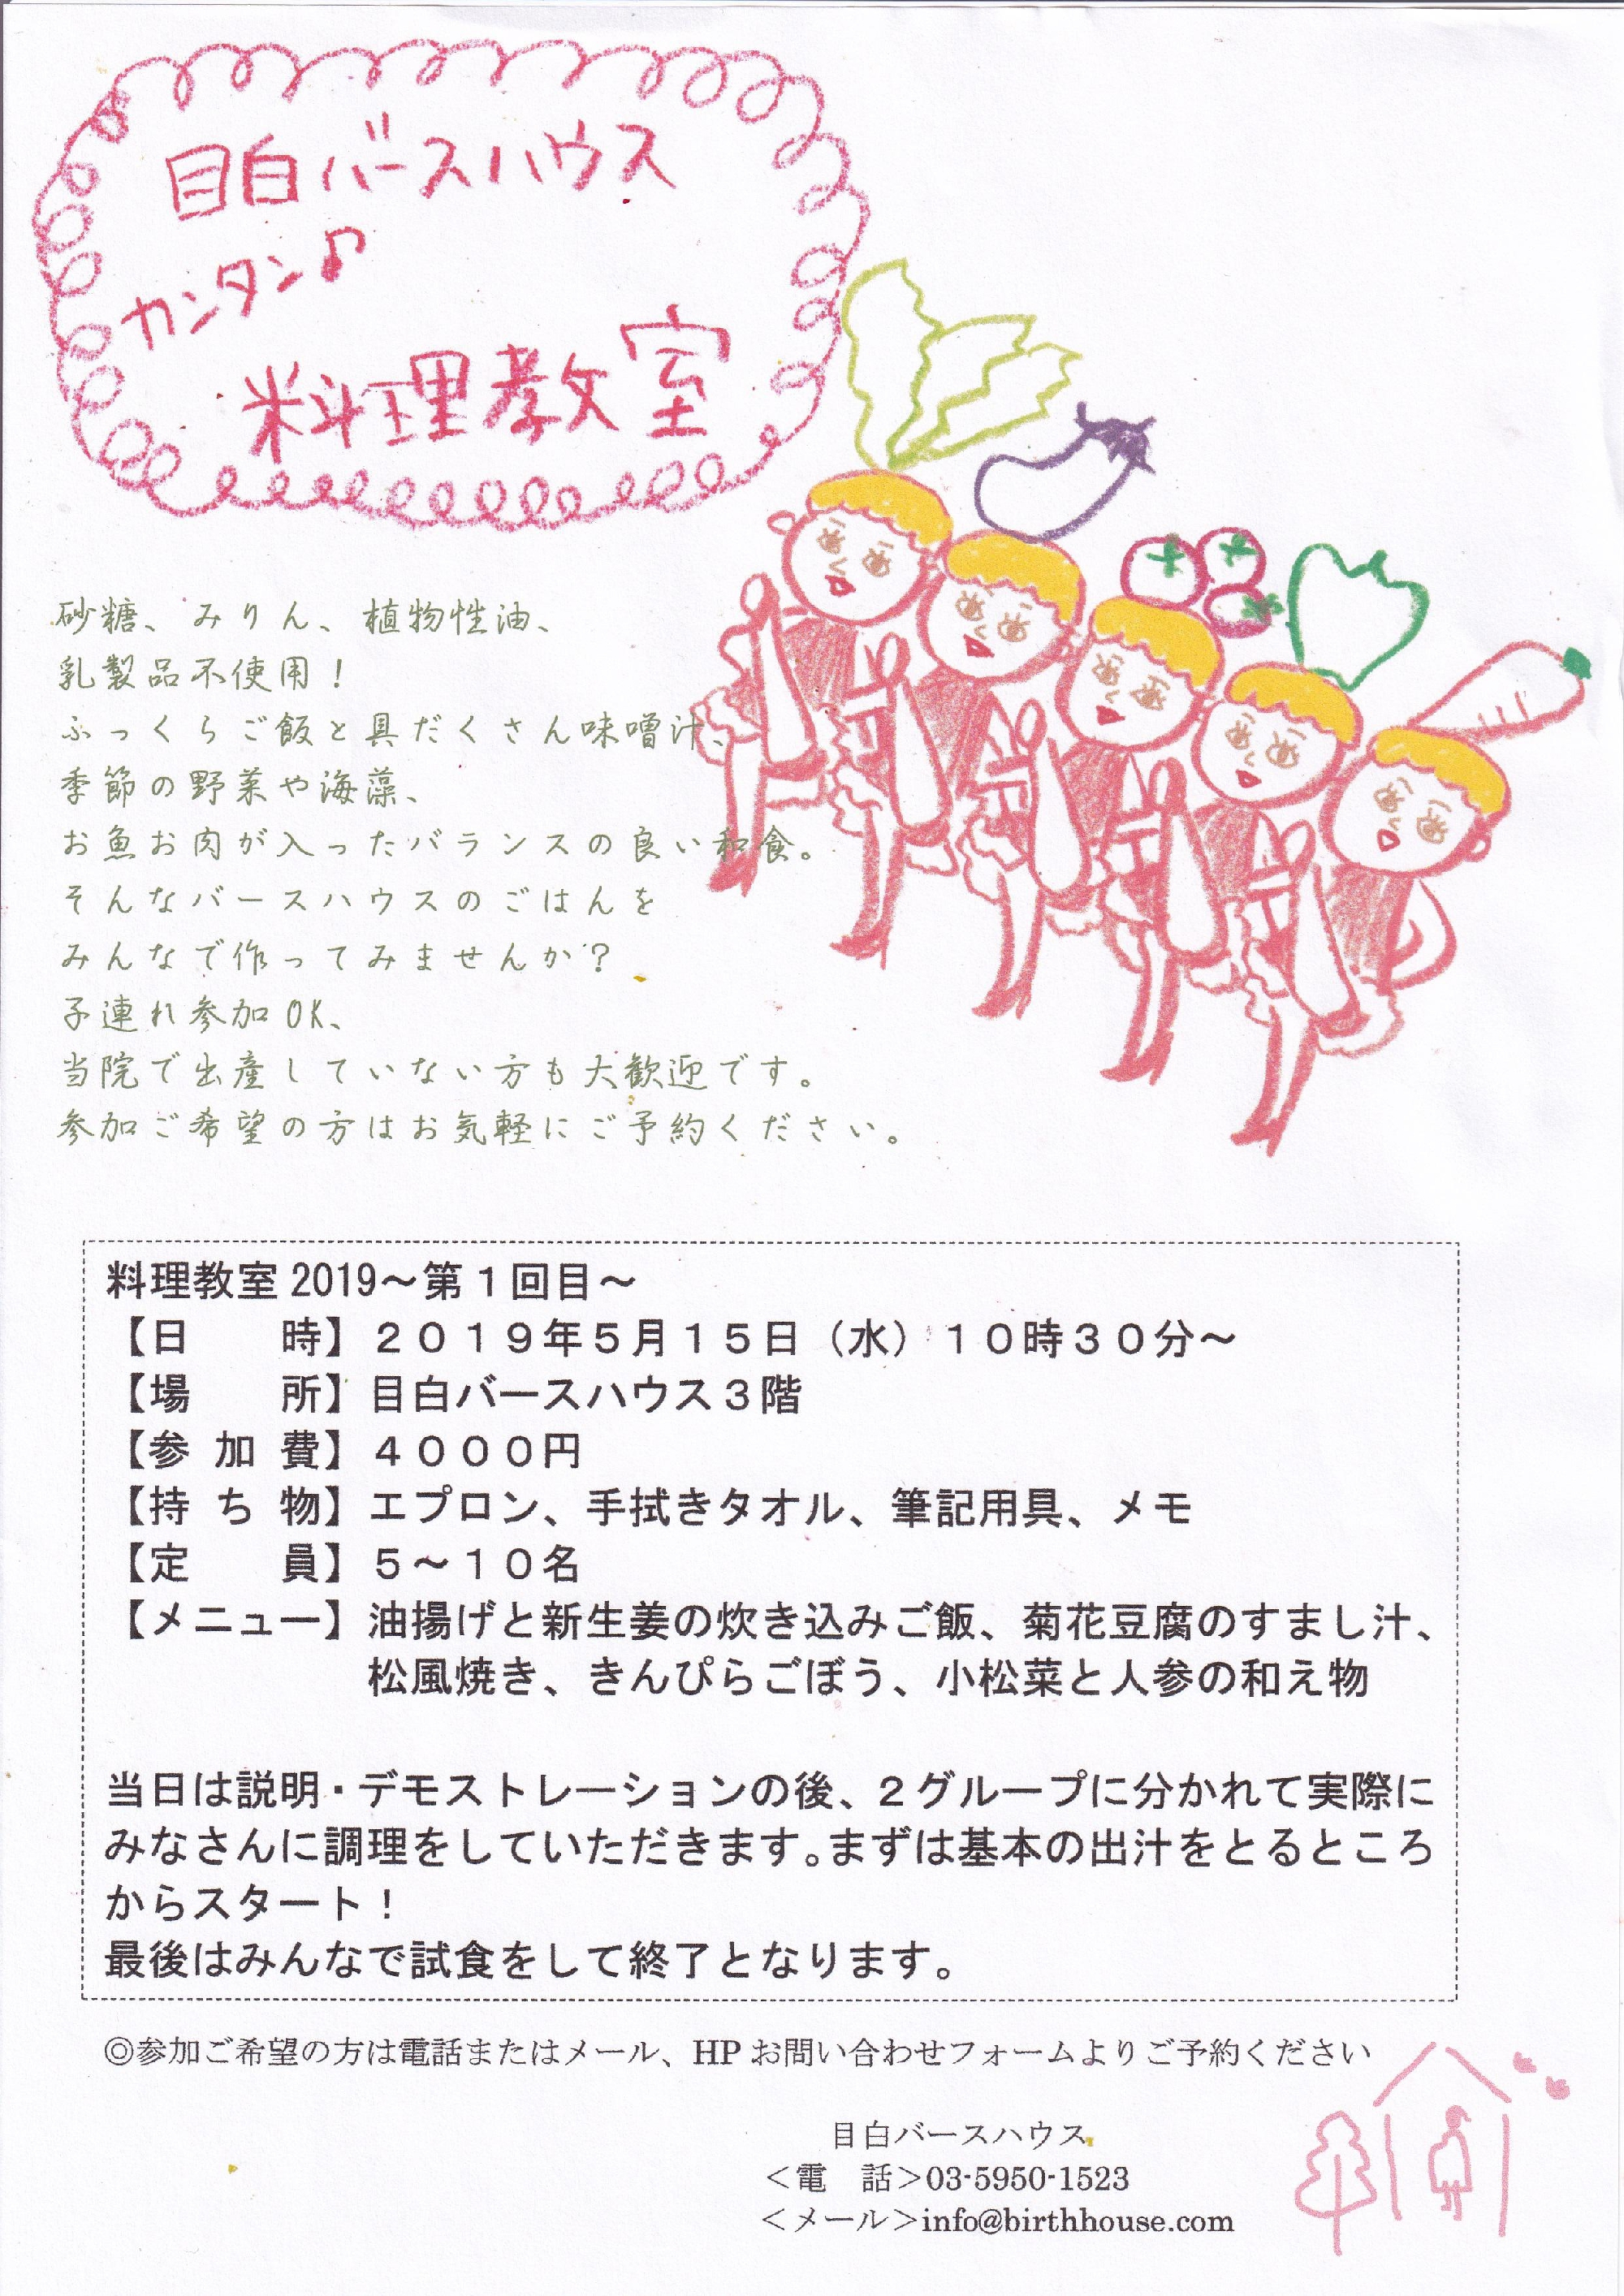 目白バースハウス
カンタン♪
料理教室
砂糖、みりん、植物性油、
乳製品不使用！
ふっくらご飯と具だくさん味噌汁、
季節の野菜や海藻、
お魚お肉が入ったバランスの良い和食。
そんなバースハウスのごはんを
みんなで作ってみませんか？
子連れ参加OK、
当院で出産していない方も大歓迎です。
参加ご希望の方はお気軽にご予約ください。
料理教室 2019～第１回目～
【日　　時】２０１９年５月１５日（水）１０時３０分～
【場　　所】目白バースハウス３階
【参 加 費】４０００円
【持 ち 物】エプロン、手拭きタオル、筆記用具、メモ
【定　　員】５～１０名
【メニュー】油揚げと新生姜の炊き込みご飯、菊花豆腐のすまし汁、
松風焼き、きんぴらごぼう、小松菜と人参の和え物
当日は説明・デモストレーションの後、２グループに分かれて実際に
みなさんに調理をしていただきます。まずは基本の出汁をとるところ
からスタート！
最後はみんなで試食をして終了となります。
◎参加ご希望の方は電話またはメール、HP お問い合わせフォームよりご予約ください
目白バースハウス
＜電　話＞03-5950-1523
＜メール＞info@birthhouse.com